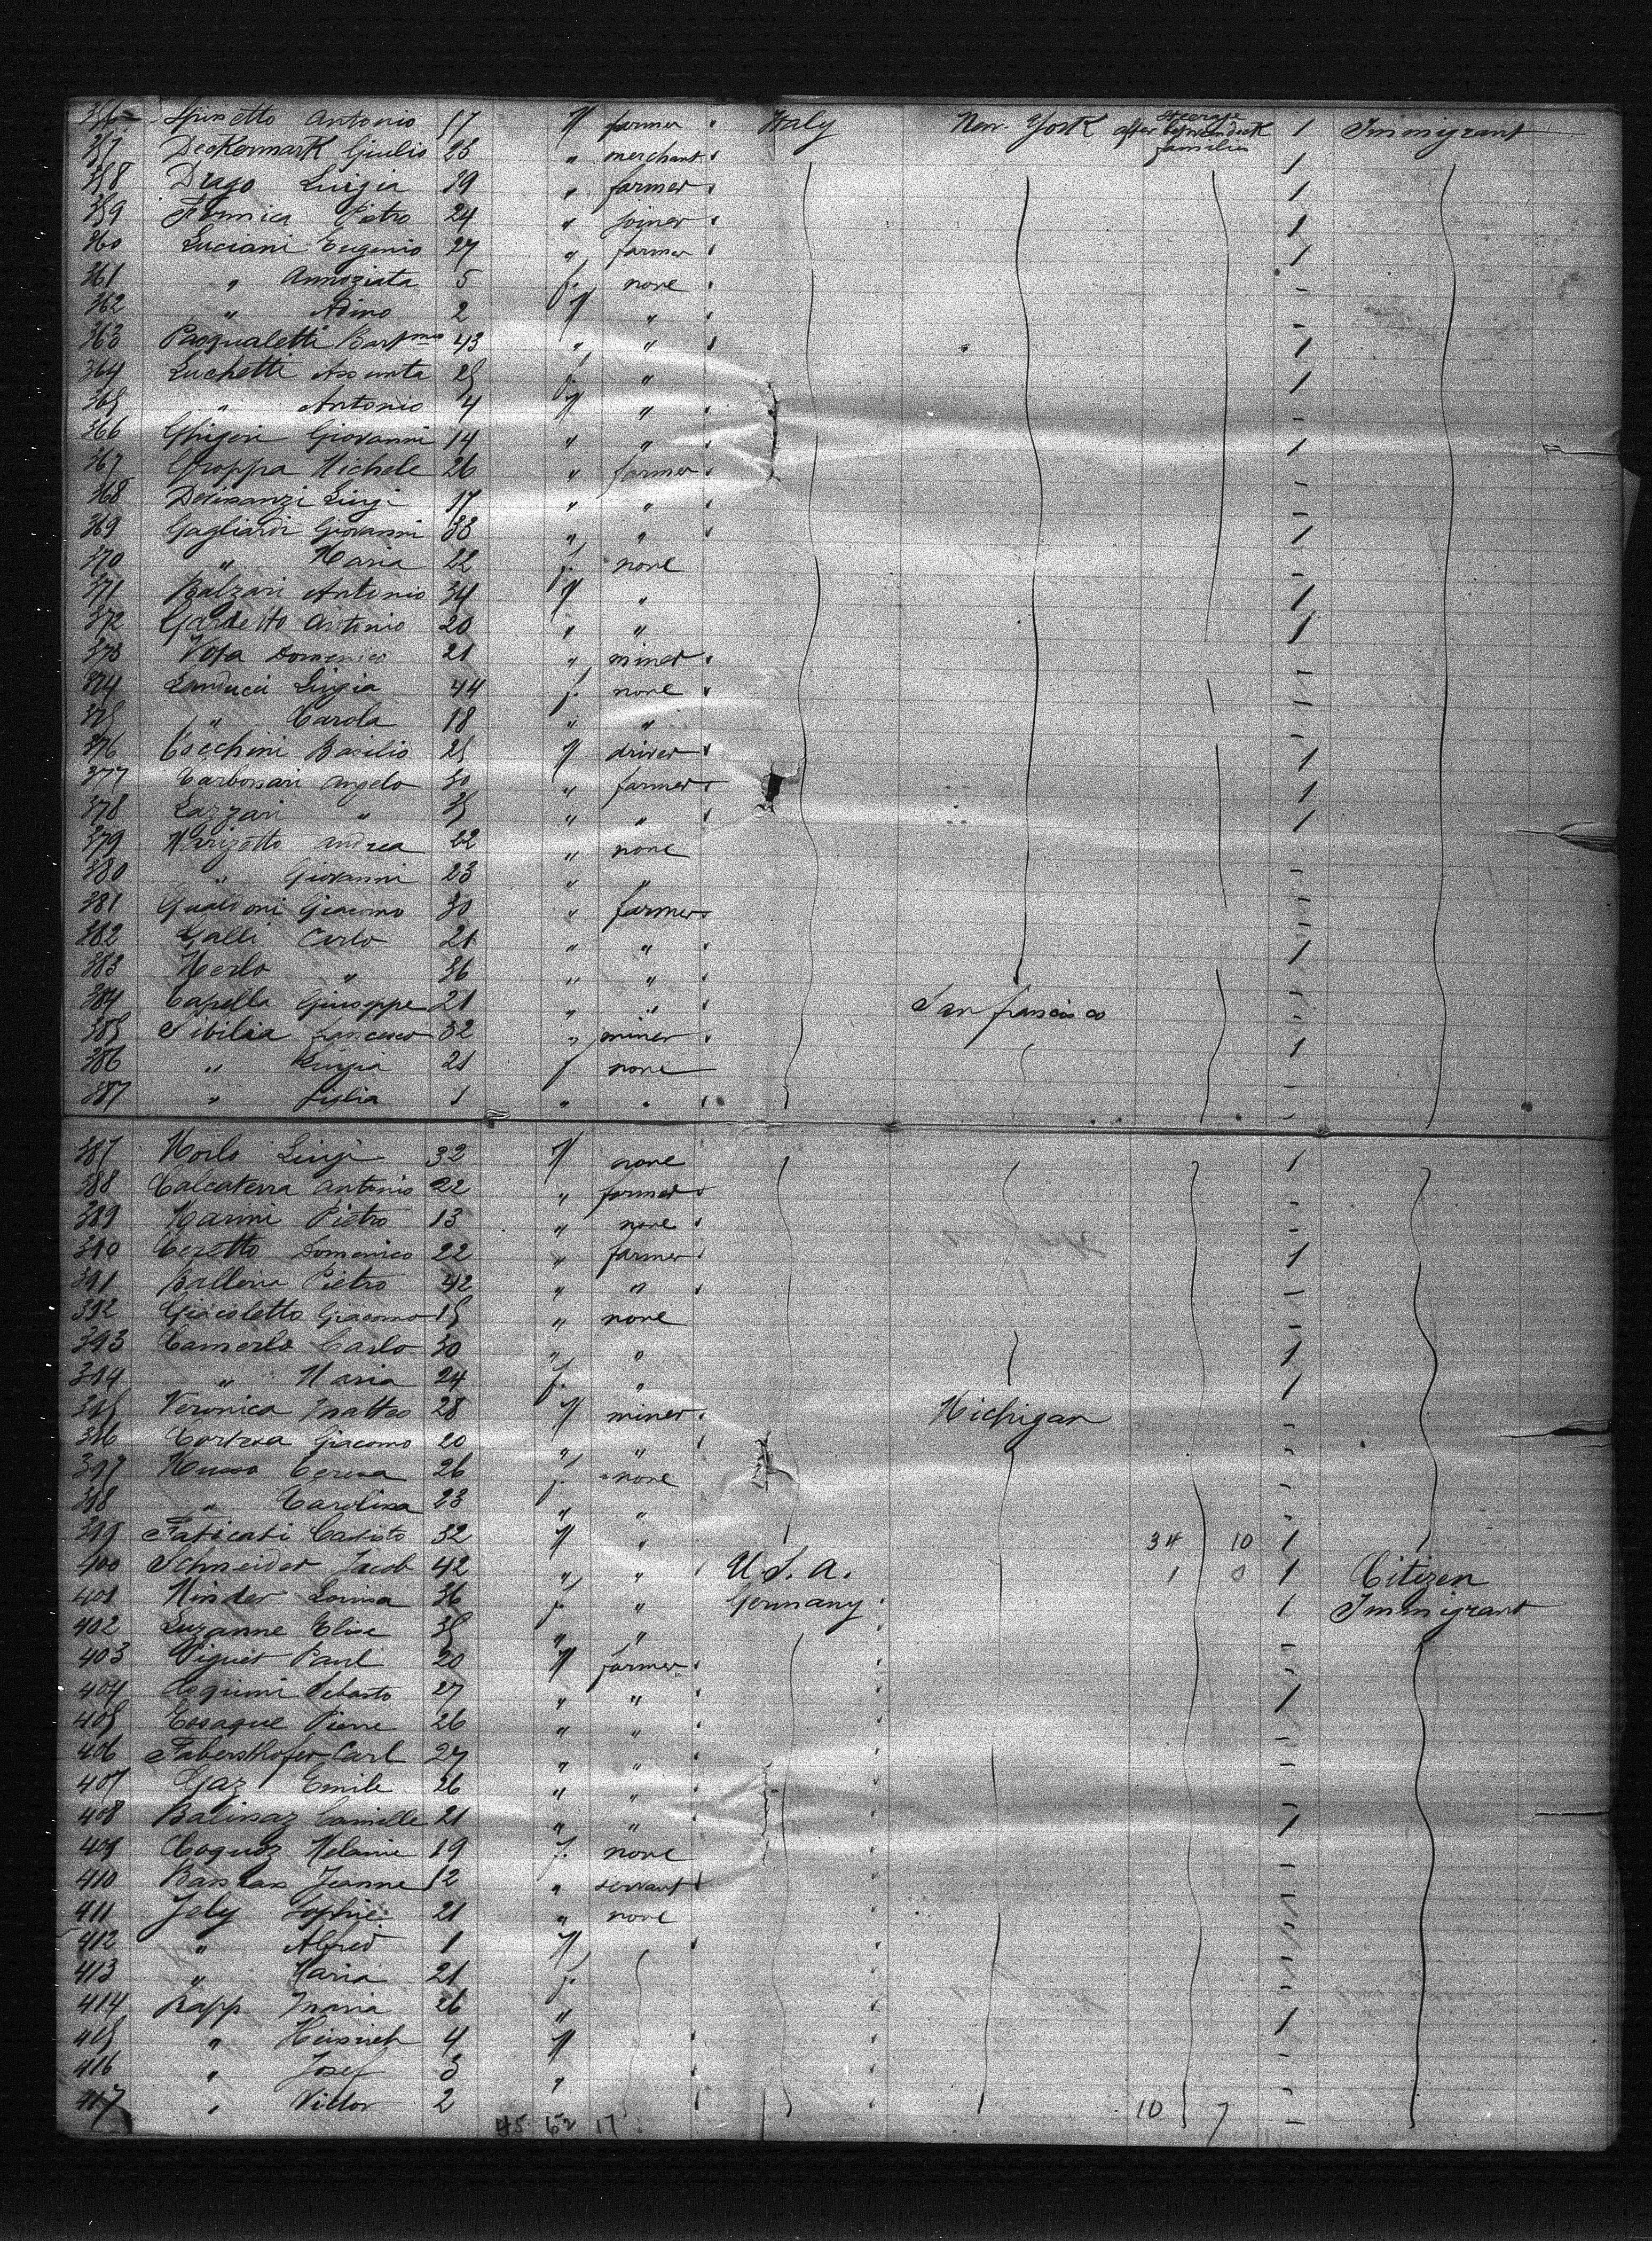 356 Antonio 17 M farmer Italy New York Steerage after betweendeck families 1 Immigrant
357 Deckermark Giulio 23 " merchant 1
358 Drago Luigia 29 " farmer 1
359 Formica Pietro 24 " joiner 1
360 Luciani Eugenio 27 " farmer 1
361 " Annoziata 5 f. none -
362 " Adino 2 M " -
363 Pasqualetti 43 " " 1
364 Luchetti Assunta 25 f. " 1
365 " Antonio 4 M " -
366 Ghigeri Giovanni 14 " " 1
367 Groppa Michele 26 " farmer -
368 Luigi 17 " " -
369 Gagliardi Giovanni 38 " " 1
370 " Maria 22 f. none -
371 Balzari Antonio 34 M " 1
372 Gardetto Antonio 20 " " 1
373 Vota Domenico 21 " miner -
374 Landucci Luigia 44 f. none -
375 " Carola 18 " " -
376 Cocchini Basilio 25 M driver 1
377 Carbonari Angelo 30 " farmer 1
378 Lazzari " 35 " " 1
379 Andrea 22 " none
380 " Giovanni 23 " " -
381 Gualdoni Giacomo 30 " farmer -
382 Galli Carlo 21 " " 1
383 Merlo " 36 " "
384 Capella Giuseppe 21 " " San francisco -
385 Sibilia francesco 32 " miner 1
386 " Luigia 21 f. none
387 " Giglia 1 " " -
387 Morlo Luigi 32 M none 1
388 Calcaterra Antonio 22 " farmer -
389 Marini Pietro 13 " none -
390 Cezetto Domenico 22 " farmer 1
391 Pietro 42 " " -
392 Giacoletto Giacomo 15 " none -
393 Camerlo Carlo 30 " " 1
394 " Maria 24 f. " 1
395 Veronica Matteo 28 M miner Michigan -
396 Giacomo 20 " " -
397 Musso Teresa 26 f. none -
398 " Carolina 23 " " -
399 32 M " 34 10 1
400 Schneider Jacob 42 " " U.S.A. 1 0 1 Citizen
401 Minder Louisa 36 f. " Germany 1 Immigrant
402 Luzanne Elise 35 " " -
403 Viguet Paul 20 M farmer -
404 27 " " 1
405 Pierre 26 " " -
406 Carl 27 " " -
407 Gaz Emile 26 " " -
408 Camille 21 " " 1
409 Coquoz Melanie 19 f. none -
410 Jeanne 12 " servant -
411 Jely Sophie 21 " none -
412 " Alfred 1 M -
413 " Maria 21 f. -
414 Rapp Maria 26 " 1
415 " Heinrich 4 M -
416 " Josef 3 " -
417 " Victor 2 10 7 -
45 62 17